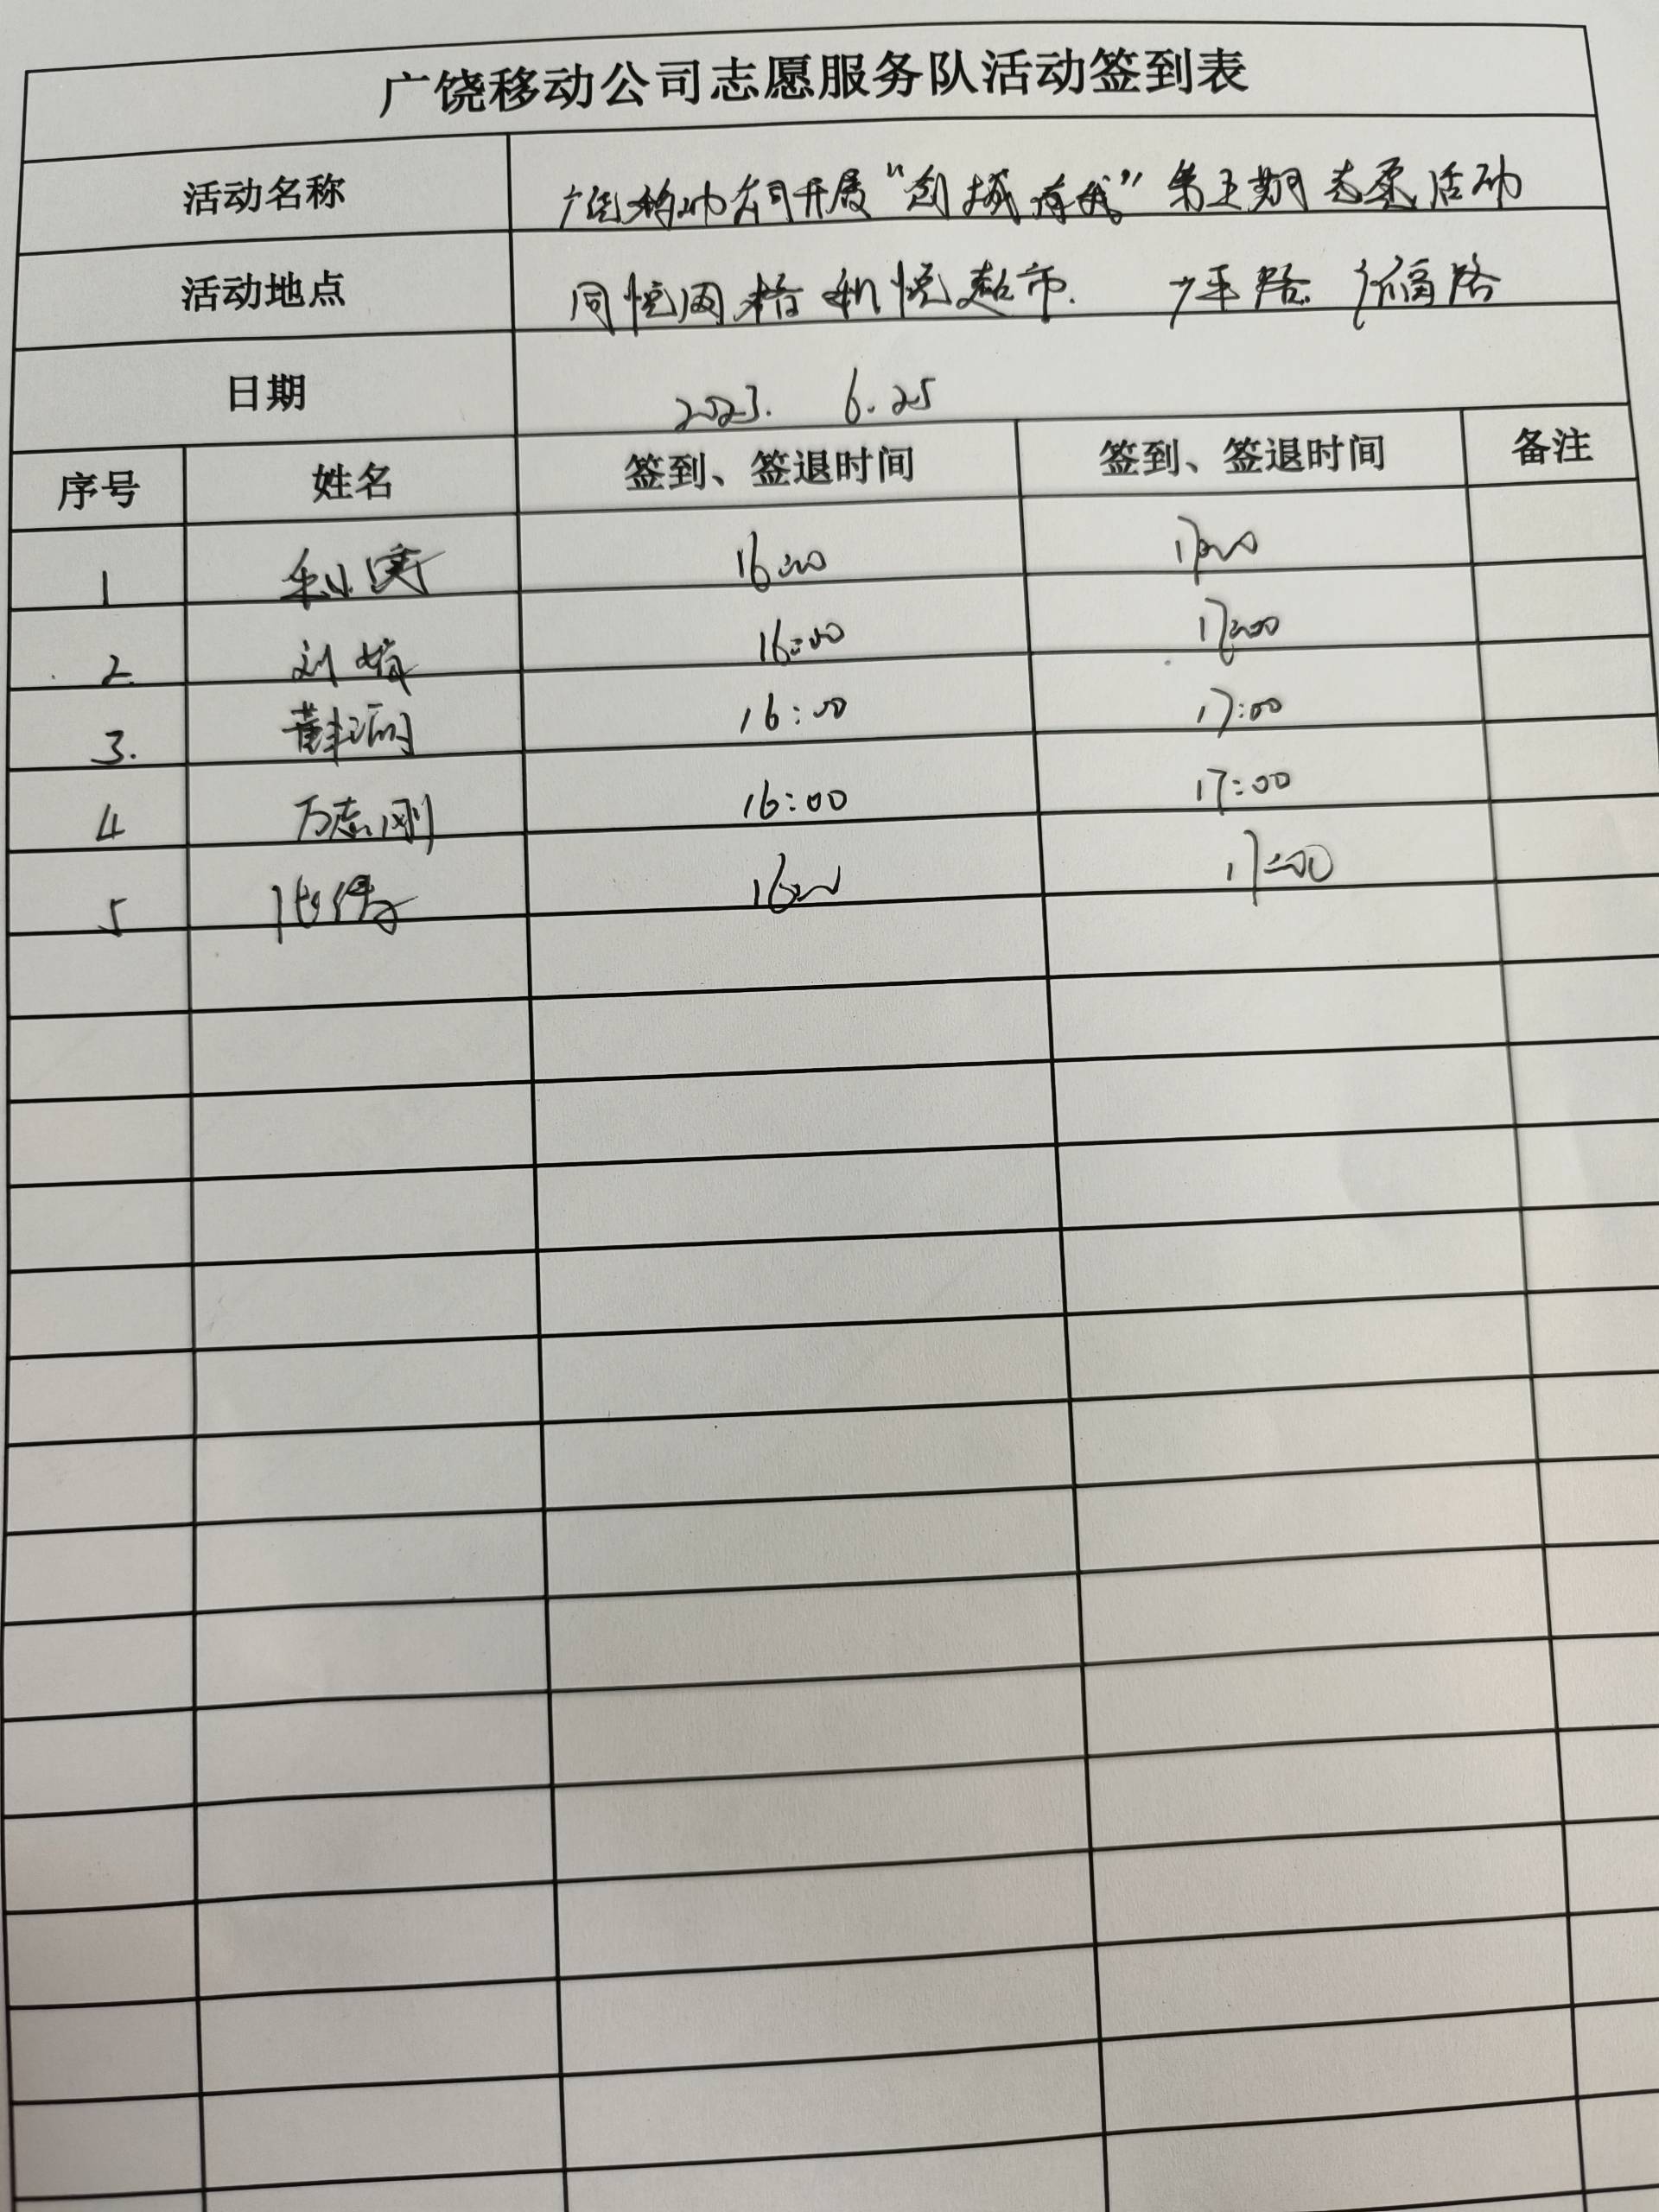 广饶移动公司志愿服务队活动签到表
活动名称 广饶移动公司开展“创城有我”第五期志愿活动
活动地点 同悦网格 利悦超市. 路. 路
日期 2023. 6.25
序号 姓名 签到、签退时间 签到、签退时间 备注
1 16:00 17:00
2 刘 16:00 17:00
3. 董 16:00 17:00
4 万志刚 16:00 17:00
5 16:00 17:00